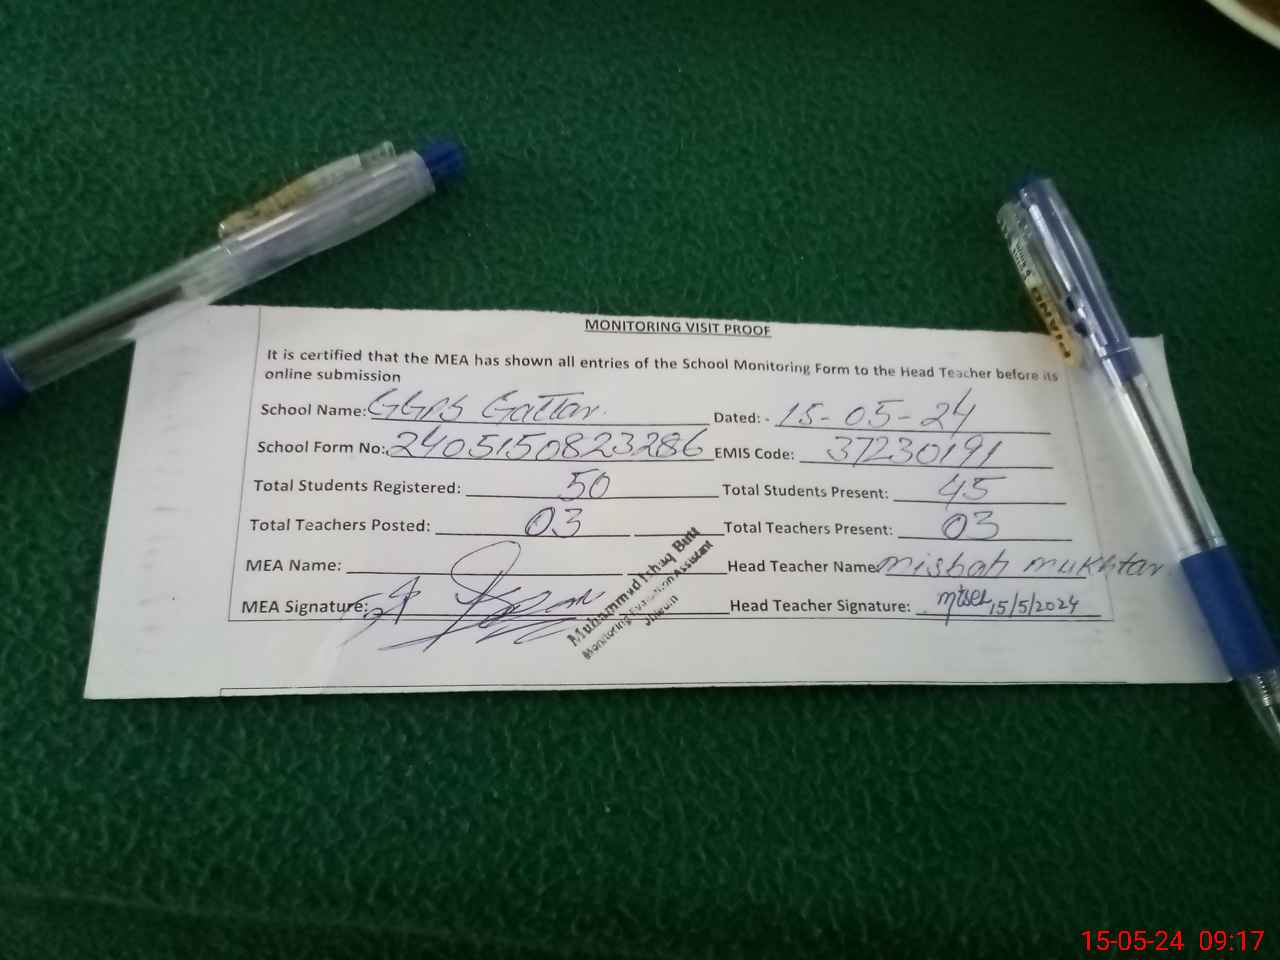 MONITORING VISIT PROOF
It is certified that the MEA has shown all entries of the School Monitoring Form to the Head Teacher before its
online submission
School Name: GGPS Gattar. Dated: - 15-05-24
School Form No: 2405150823286 EMIS Code: 37230191
Total Students Registered: 50 Total Students Present: 45
Total Teachers Posted: 03 Total Teachers Present: 03
MEA Name: Head Teacher Name mishah mukhtar
MEA Signature: Head Teacher Signature: 15/5/2024
Muhammad Ishaq Butt
Monitoring Evaluation Assistant
Jhelum
PIANO
15-05-24 09:17